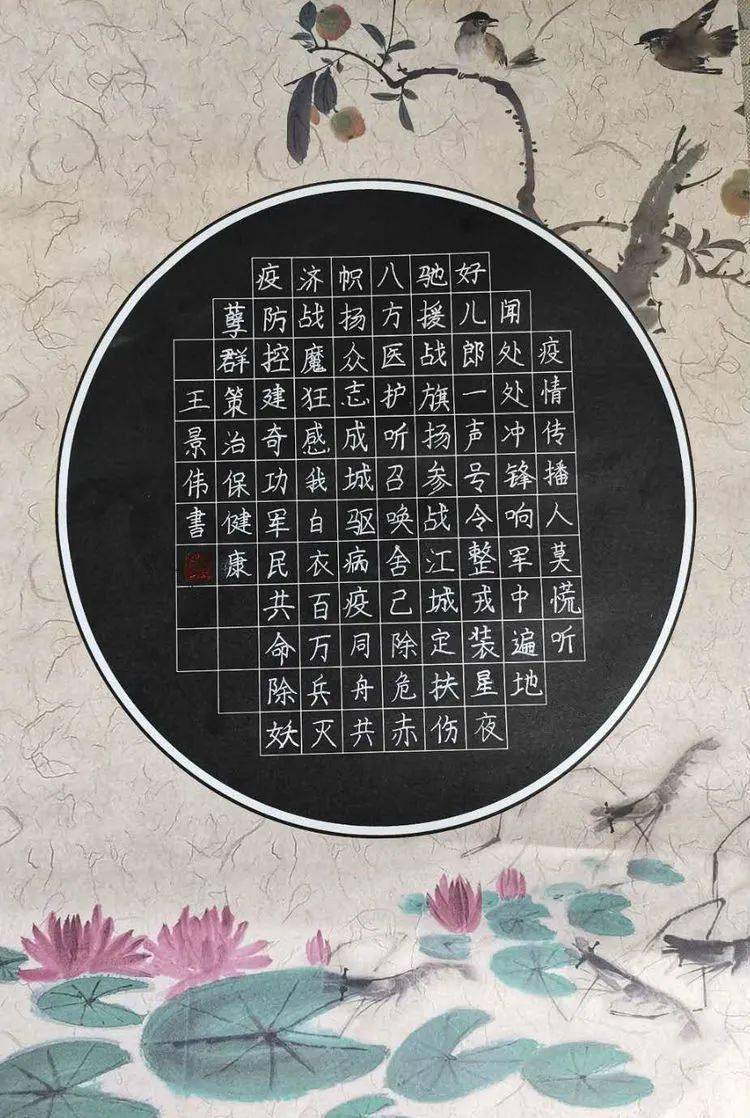 疫情传播人莫慌听
闻处处冲锋响军中遍地
好儿郎一声号令整戎装星夜
驰援战旗扬参战江城定扶伤
八方医护听召唤舍己除危赤
帜扬众志成城驱病疫同舟共
济战魔狂感我白衣百万兵灭
疫防控建奇功军民共命除妖
孽群策治保健康
王景伟書